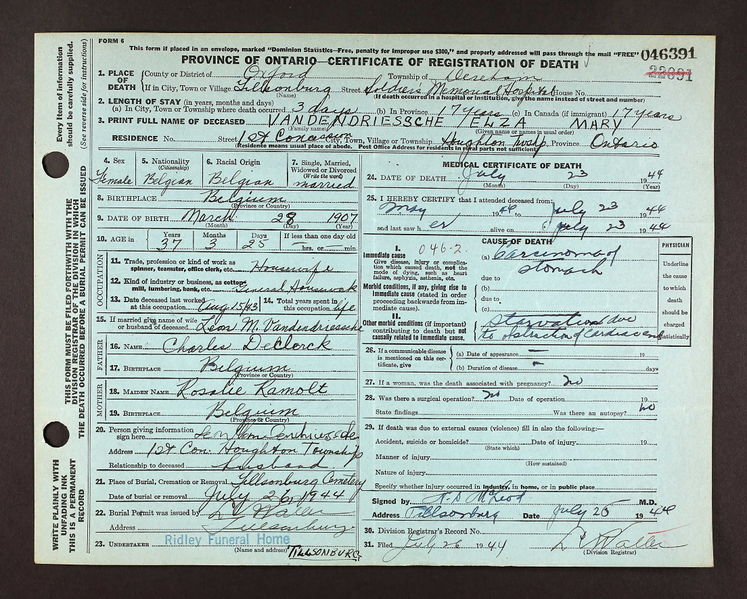 FORM 6
This form if placed in an envelope, marked "Dominion Statistics—Free, penalty for improper use $300," and properly addressed will pass through the mail "FREE"
046391
PROVINCE OF ONTARIO—CERTIFICATE OF REGISTRATION OF DEATH
22091
1. PLACE OF DEATH
County or District of Oxford Township of Dereham
If in City, Town or Village Tillsonburg Street Soldiers Memorial Hospital House No.
(Name) (If death occurred in a hospital or institution, give the name instead of street and number)
2. LENGTH OF STAY (in years, months and days)
(a) In City, Town, Township where death occurred 3 days (b) In Province 17 years (c) In Canada (if immigrant) 17 years
3. PRINT FULL NAME OF DECEASED VANDENDRIESSCHE ELZA MARY
(Family name) (Given name or names in usual order)
RESIDENCE No. Street 1st Concession City, Town, Village or Township Houghton twsp Province Ontario
(Residence means usual place of abode. Post Office Address for residents in rural parts not sufficient)
4. Sex Female
5. Nationality (Citizenship) Belgian
6. Racial Origin Belgian
7. Single, Married, Widowed or Divorced (Write the word) married
8. BIRTHPLACE Belgium
(Province or Country)
9. DATE OF BIRTH March 28 1907
(Month) (Day) (Year)
10. AGE in Years 37 Months 3 Days 25 If less than one day old hrs. or min.
OCCUPATION
11. Trade, profession or kind of work as spinner, teamster, office clerk, etc. Housewife
12. Kind of industry or business, as cotton mill, lumbering, bank, etc. General Housework
13. Date deceased last worked at this occupation Aug 15/43
14. Total years spent in this occupation life
15. If married give name of wife or husband of deceased Leon M. Vandendriessche
FATHER
16. NAME Charles DeClerck
17. BIRTHPLACE Belgium
(Province or Country)
MOTHER
18. MAIDEN NAME Rosalie Ramolt
19. BIRTHPLACE Belgium
(Province or Country)
20. Person giving information sign here
Address 1st Con. Houghton Township
Relationship to deceased husband
21. Place of Burial, Cremation or Removal Tillsonburg Cemetery
Date of burial or removal July 26, 1944
22. Burial Permit was issued by Waller
Address Tillsonburg
23. UNDERTAKER Ridley Funeral Home
(Name and address) TILLSONBURG
MEDICAL CERTIFICATE OF DEATH
24. DATE OF DEATH July 23 1944
(Month) (Day) (Year)
25. I HEREBY CERTIFY that I attended deceased from:
May 1944 to July 23 1944
and last saw her alive on July 23 1944
CAUSE OF DEATH
046-2
I.
Immediate cause
Give disease, injury or complication which caused death, not the mode of dying, such as heart failure, asphyxia, asthenia, etc.
(a) Carcinoma of stomach
due to
Morbid conditions, if any, giving rise to immediate cause (stated in order proceeding backwards from immediate cause).
(b)
due to
(c)
II.
Other morbid conditions (if important) contributing to death but not causally related to immediate cause.
Starvation due to obstruction of Cardiac end
PHYSICIAN
Underline the cause to which death should be charged statistically
26. If a communicable disease is mentioned on this certificate, give
(a) Date of appearance — 19
(b) Duration of disease — days
27. If a woman, was the death associated with pregnancy? No
28. Was there a surgical operation? No Date of operation 19
State findings Was there an autopsy? No
29. If death was due to external causes (violence) fill in also the following:—
Accident, suicide or homicide? Date of injury 19
(State which)
Manner of injury
(How sustained)
Nature of injury
Specify whether injury occurred in industry, in home, or in public place
Signed by McLeod M.D.
Address Tillsonburg Date July 25 1944
30. Division Registrar's Record No.
31. Filed July 26 1944 Waller
(Division Registrar)
Every item of information should be carefully supplied.
(See reverse side for Instructions)
THIS FORM MUST BE FILED FORTHWITH WITH THE DIVISION REGISTRAR OF THE DIVISION IN WHICH THE DEATH OCCURRED BEFORE A BURIAL PERMIT CAN BE ISSUED
WRITE PLAINLY WITH UNFADING INK
THIS IS A PERMANENT RECORD